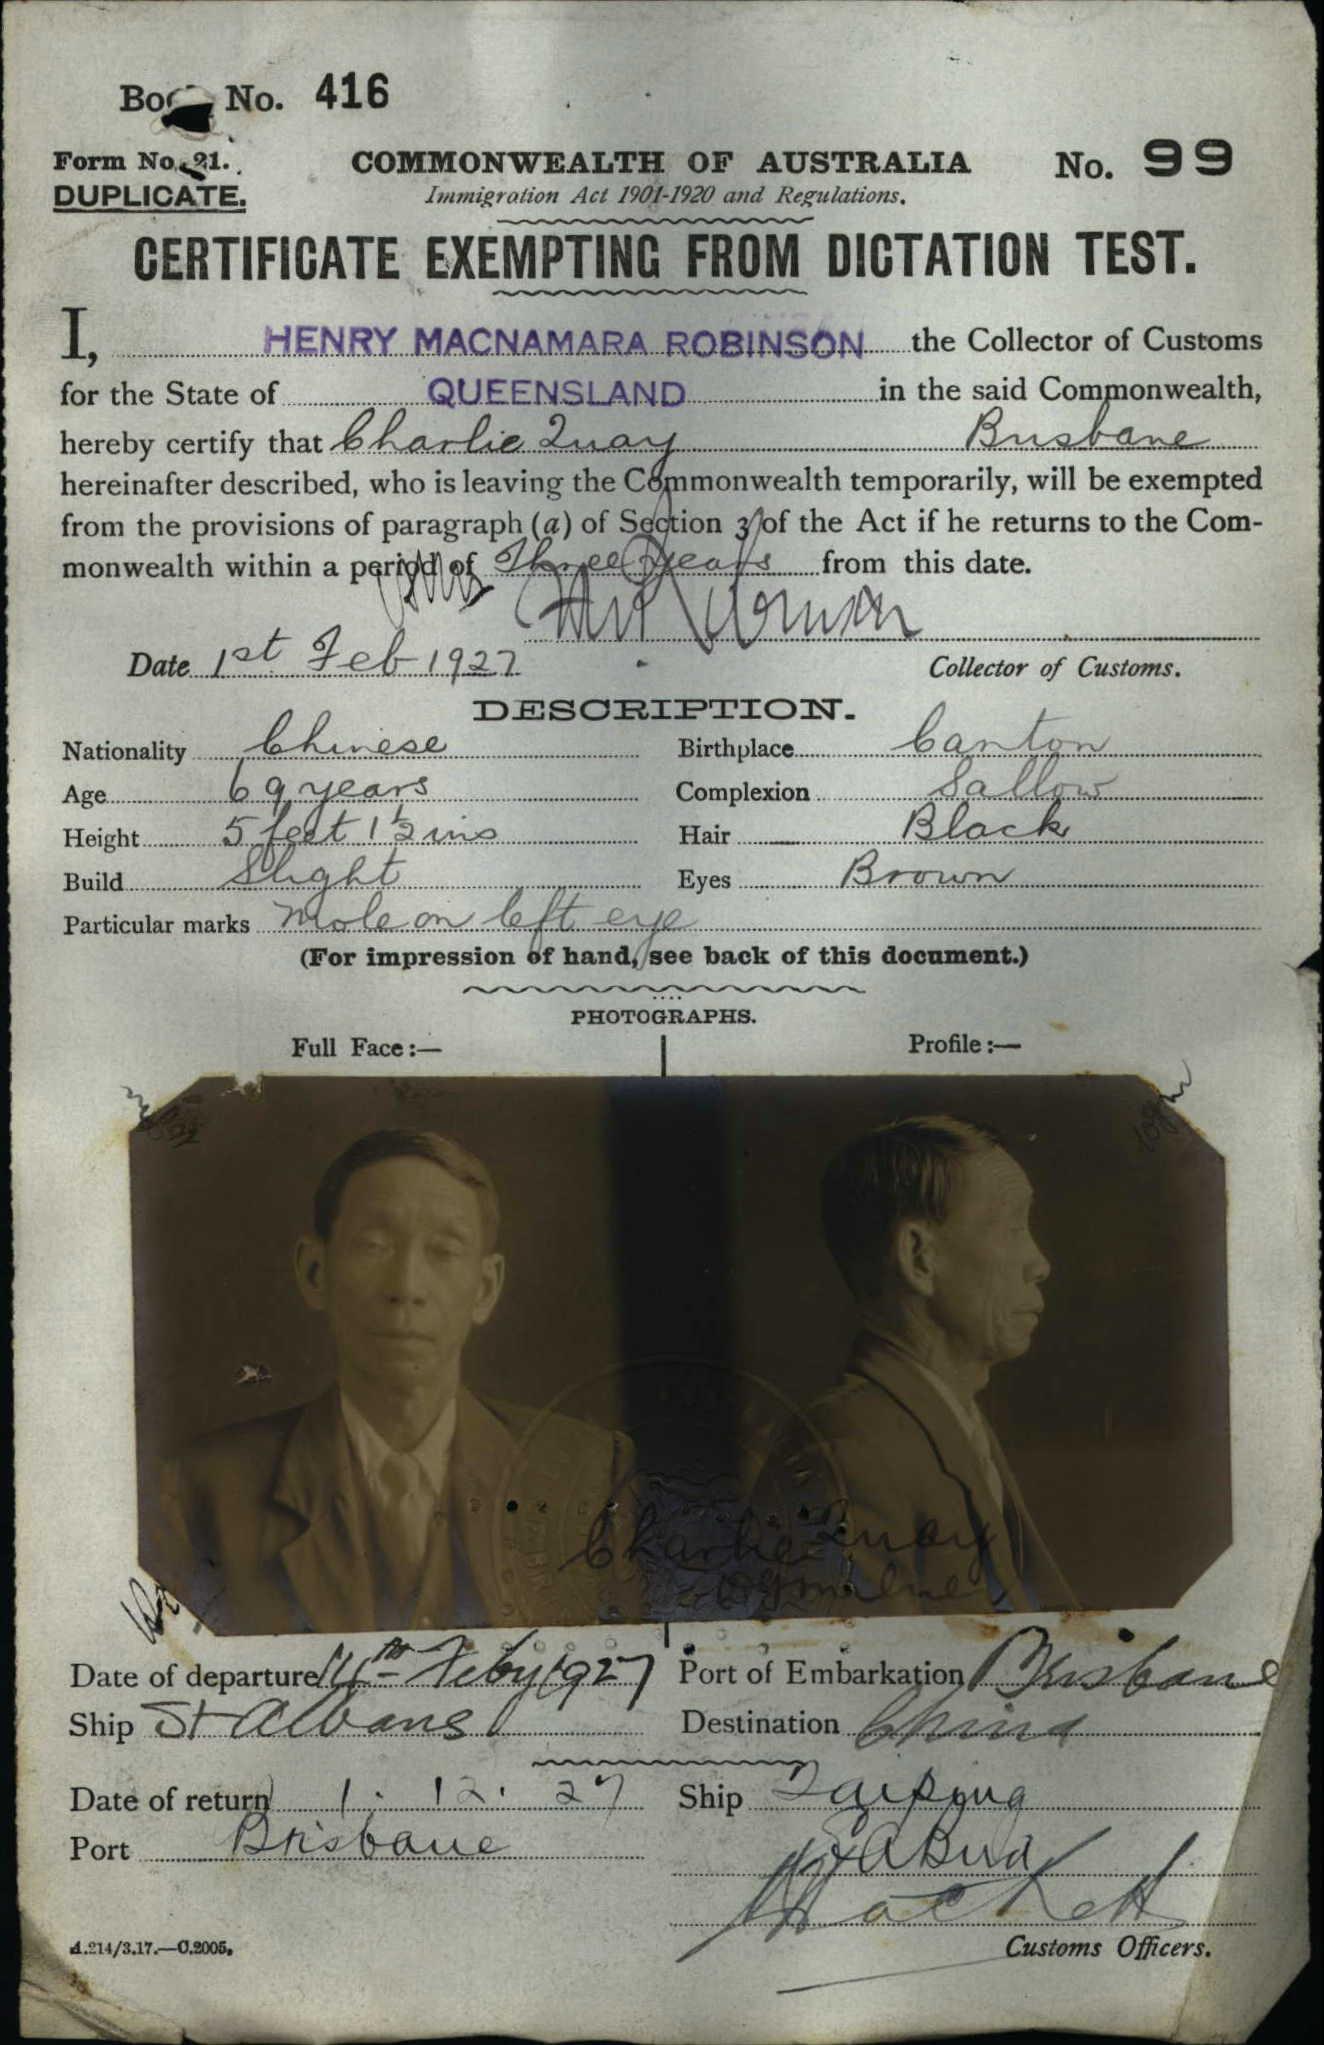 Book No. 416
Form No. 21.
DUPLICATE.
COMMONWEALTH OF AUSTRALIA
No. 99
Immigration Act 1901-1920 and Regulations.
CERTIFICATE EXEMPTING FROM DICTATION TEST.
I, HENRY MACNAMARA ROBINSON the Collector of Customs
for the State of QUEENSLAND in the said Commonwealth,
hereby certify that Charlie Quay Brisbane
hereinafter described, who is leaving the Commonwealth temporarily, will be exempted
from the provisions of paragraph (a) of Section 3 of the Act if he returns to the Com-
monwealth within a period of Three years from this date.
Date 1st Feb 1927
Collector of Customs.
DESCRIPTION.
Nationality Chinese Birthplace Canton
Age 69 years Complexion Sallow
Height 5 feet 1½ ins Hair Black
Build Slight Eyes Brown
Particular marks Mole on left eye
(For impression of hand, see back of this document.)
PHOTOGRAPHS.
Full Face:— Profile:—
Charlie Quay
Date of departure 14th Feby 1927 Port of Embarkation Brisbane
Ship St Albans Destination China
Date of return 1. 12. 27 Ship Taiping
Port Brisbane
Customs Officers.
A.214/3.17.—C.2005.